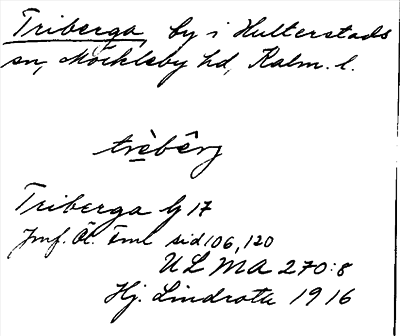 Triberga, by i Hulterstads
sn, Möckleby hd, Kalm. l.
trèbêrj
Triberga by 17
Jmf. Öl. Fml sid 106, 120
ULMA 270:8
Hj. Lindroth 1916